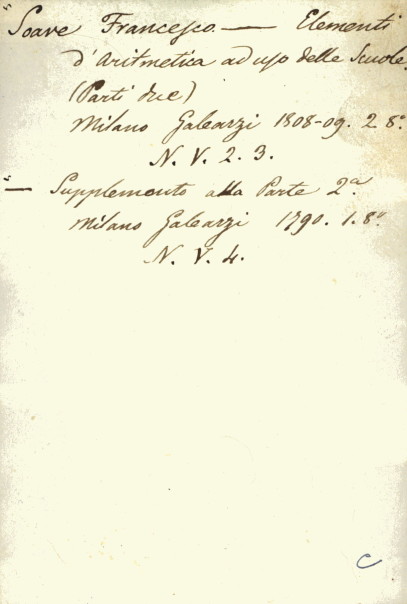 "Soave Francesco — Elementi
d'Aritmetica ad uso delle Scuole.
(Parti due)
Milano Galeazzi 1808-09. 2 8.°
N. V. 2. 3.
"— Supplemento alla Parte 2.a
Milano Galeazzi 1790. 1. 8.°
N. V. 4.
C